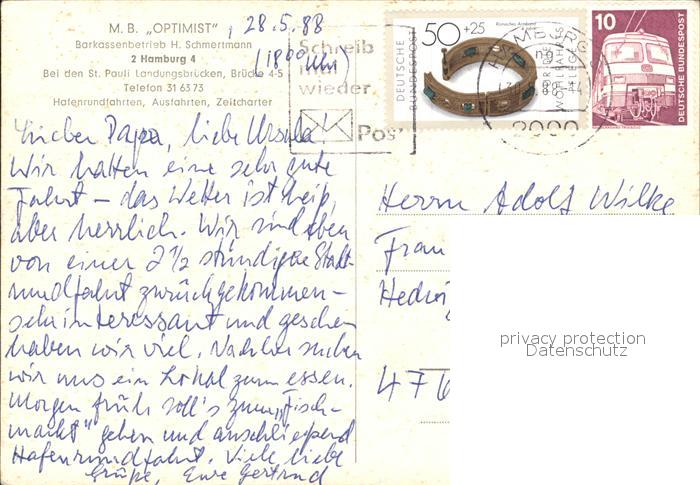 M. B. „OPTIMIST“, 28.5.88
Barkassenbetrieb H. Schmertmann
2 Hamburg 4 (1800 Uhr)
Bei den St. Pauli Landungsbrücken, Brücke 4-5
Telefon 31 63 73
Hafenrundfahrten, Ausfahrten, Zeitcharter
Schreib
mal
wieder
Post
DEUTSCHE
BUNDESPOST
50+25
Römisches Armband
FÜR DIE
WOHLFAHRTS
PFLEGE
HAMBURG
2000
10
DEUTSCHE BUNDESPOST
Lieber Papa, liebe Ursula!
Wir hatten eine sehr gute
Fahrt – das Wetter ist heiß,
aber herrlich. Wir sind eben
von einer 2 1/2 stündigen Stadt-
rundfahrt zurückgekommen –
sehr interessant und gesehen
haben wir viel. Nachher suchen
wir uns ein Lokal zum essen.
Morgen früh soll's zum „Fisch-
markt“ gehen und anschließend
Hafenrundfahrt. Viele liebe
Grüße, Eure Gertrud
Herrn Adolf Wilke
Frau
Hedwig
476
privacy protection
Datenschutz